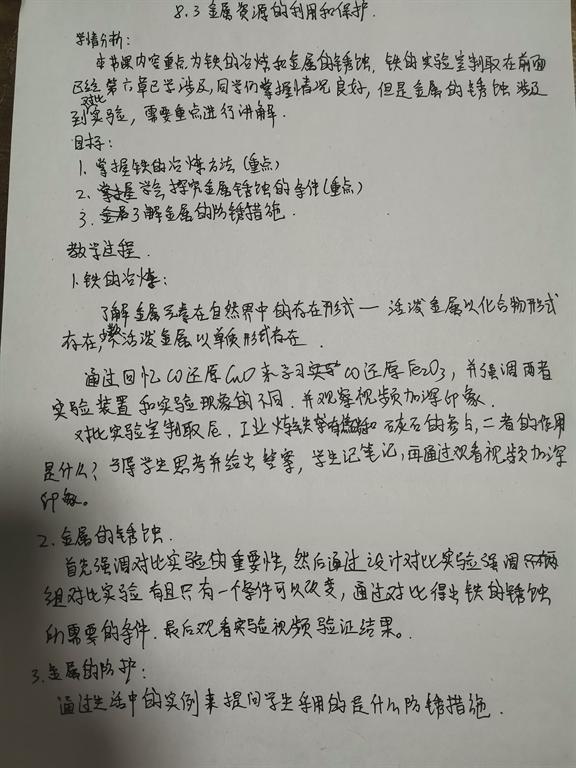 8.3金属资源的利用和保护.
学情分析:
本节课内容重点为铁的冶炼和金属的锈蚀,铁的实验室制取在前面
已经第六章已学涉及,同学们掌握情况良好,但是金属的锈蚀涉及
到对比实验,需要重点进行讲解.
目标:
1.掌握铁的冶炼方法(重点)
2.学会探究金属锈蚀的条件(重点)
3.了解金属的防锈措施.
教学过程.
1.铁的冶炼:
了解金属元素在自然界中的存在形式—活泼金属以化合物形式
存在,少数不活泼金属以单质形式存在.
通过回忆CO还原CuO来学习实验CO还原Fe2O3,并强调两者
实验装置和实验现象的不同.并观察视频加深印象.
对比实验室制取Fe,工业炼铁有焦炭和石灰石的参与,二者的作用
是什么?引导学生思考并给出答案,学生记笔记,再通过观看视频加深
印象。
2.金属的锈蚀.
首先强调对比实验的重要性,然后通过设计对比实验强调两
组对比实验有且只有一个条件可以改变,通过对比得出铁的锈蚀
所需要的条件.最后观看实验视频验证结果。
3.金属的防护:
通过生活中的实例来提问学生采用的是什么防锈措施.